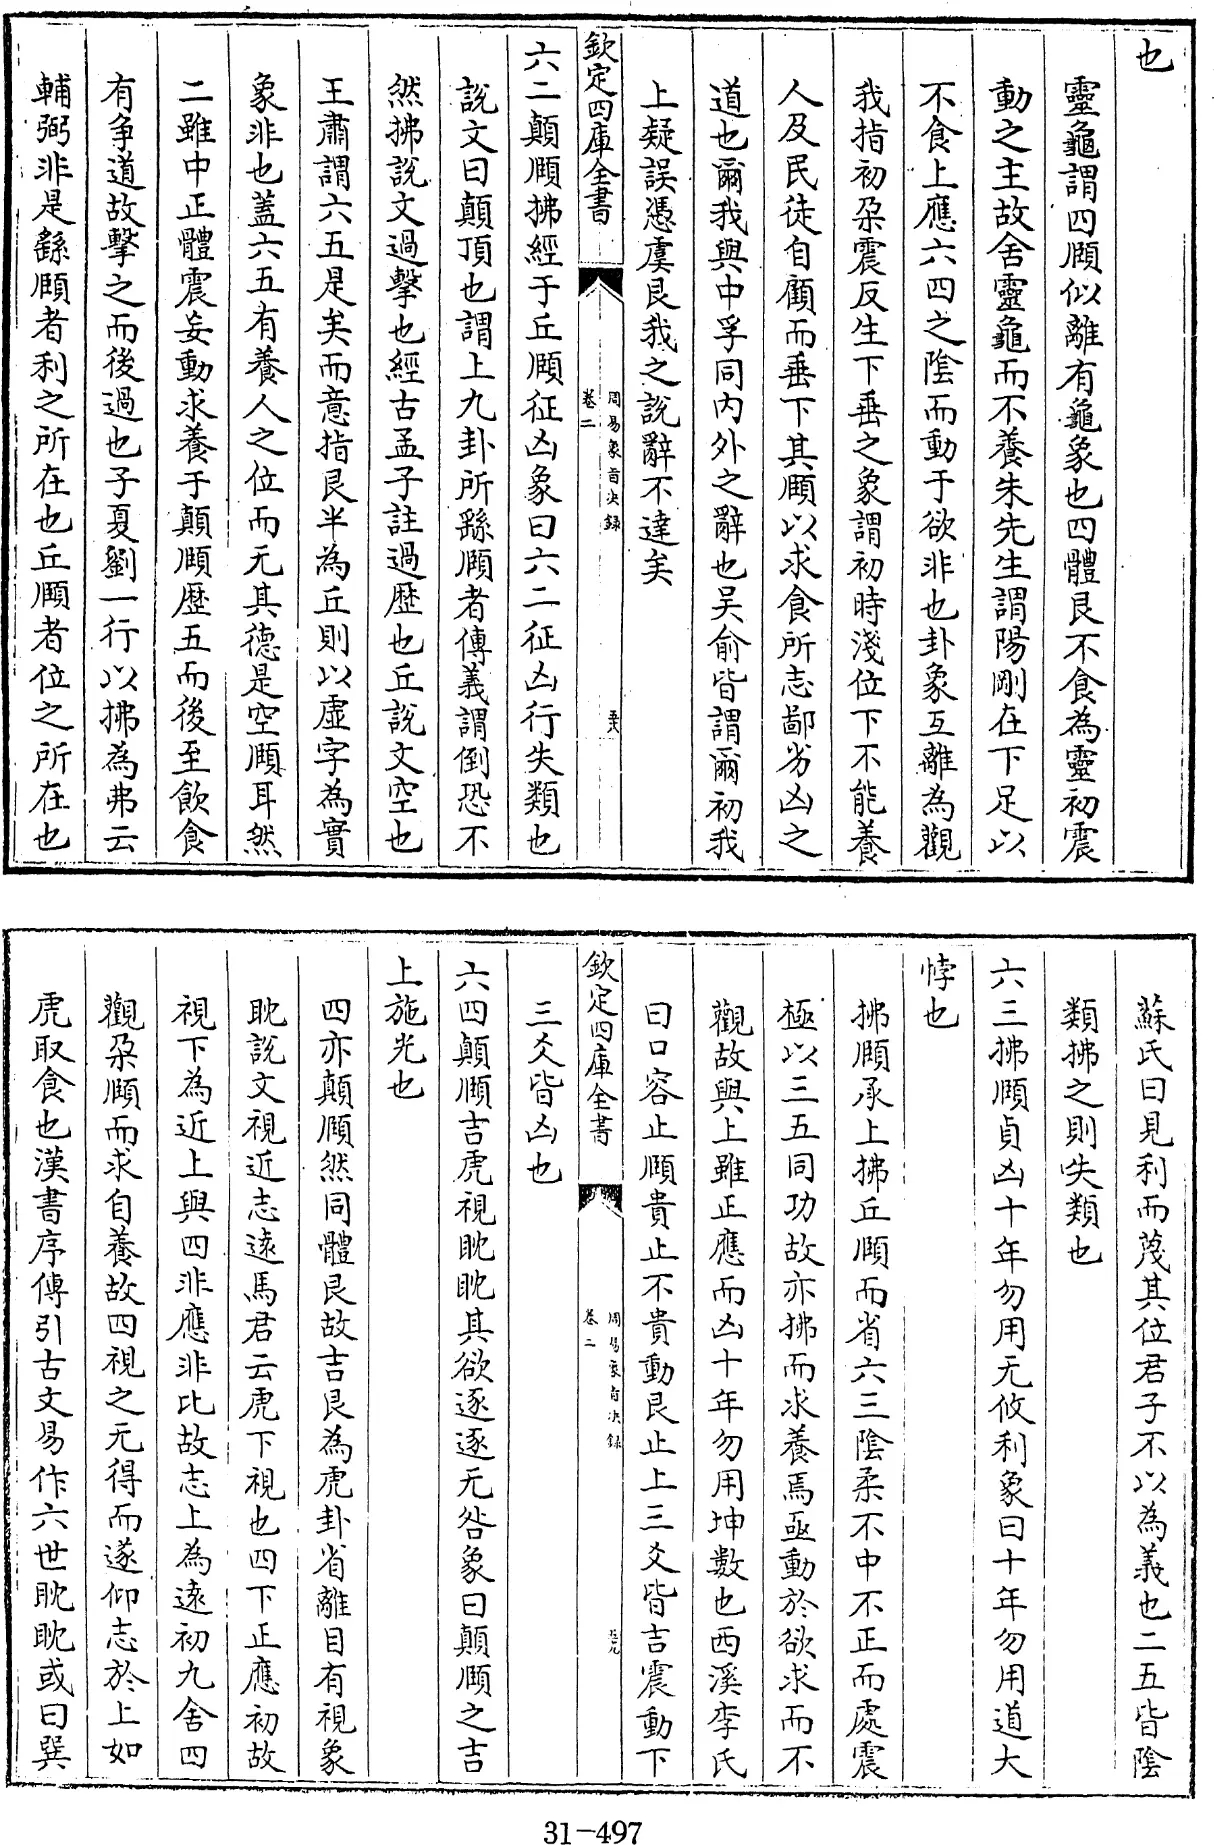 也
靈龜謂四頤似離有龜象也四體艮不食為靈初震
動之主故舍靈龜而不養朱先生謂陽剛在下足以
不食上應六四之陰而動于欲非也卦象互離為觀
我指初朶震反生下垂之象謂初時淺位下不能養
人及民徒自顧而垂下其頤以求食所志鄙劣凶之
道也爾我與中孚同内外之辭也吴俞皆謂爾初我
上疑誤憑虞艮我之說辭不達矣
欽定四庫全書
周易象旨決録
卷二
六二顛頤拂經于丘頤征凶象曰六二征凶行失類也
說文曰顛頂也謂上九卦所繇頤者傳義謂倒恐不
然拂說文過擊也經古孟子註過歷也丘說文空也
王肅謂六五是矣而意指艮半為丘則以虚字為實
象非也蓋六五有養人之位而无其德是空頤耳然
二雖中正體震妄動求養于顛頤歴五而後至飲食
有争道故擊之而後過也子夏劉一行以拂為弗云
輔弼非是繇頤者利之所在也丘頤者位之所在也
蘇氏曰見利而蔑其位君子不以為義也二五皆陰
類拂之則失類也
六三拂頤貞凶十年勿用无攸利象曰十年勿用道大
悖也
拂頤承上拂丘頤而省六三陰柔不中不正而處震
極以三五同功故亦拂而求養焉亟動於欲求而不
觀故與上雖正應而凶十年勿用坤數也西溪李氏
曰口容止頤貴止不貴動艮止上三爻皆吉震動下
欽定四庫全書
周易象旨決録
卷二
三爻皆凶也
六四顛頤吉虎視眈眈其欲逐逐无咎象曰顛頤之吉
上施光也
四亦顛頤然同體艮故吉艮為虎卦省離目有視象
眈說文視近志遠馬君云虎下視也四下正應初故
視下為近上與四非應非比故志上為遠初九舍四
觀朶頤而求自養故四視之无得而遂仰志於上如
虎取食也漢書序傳引古文易作六世眈眈或曰巽
31-497